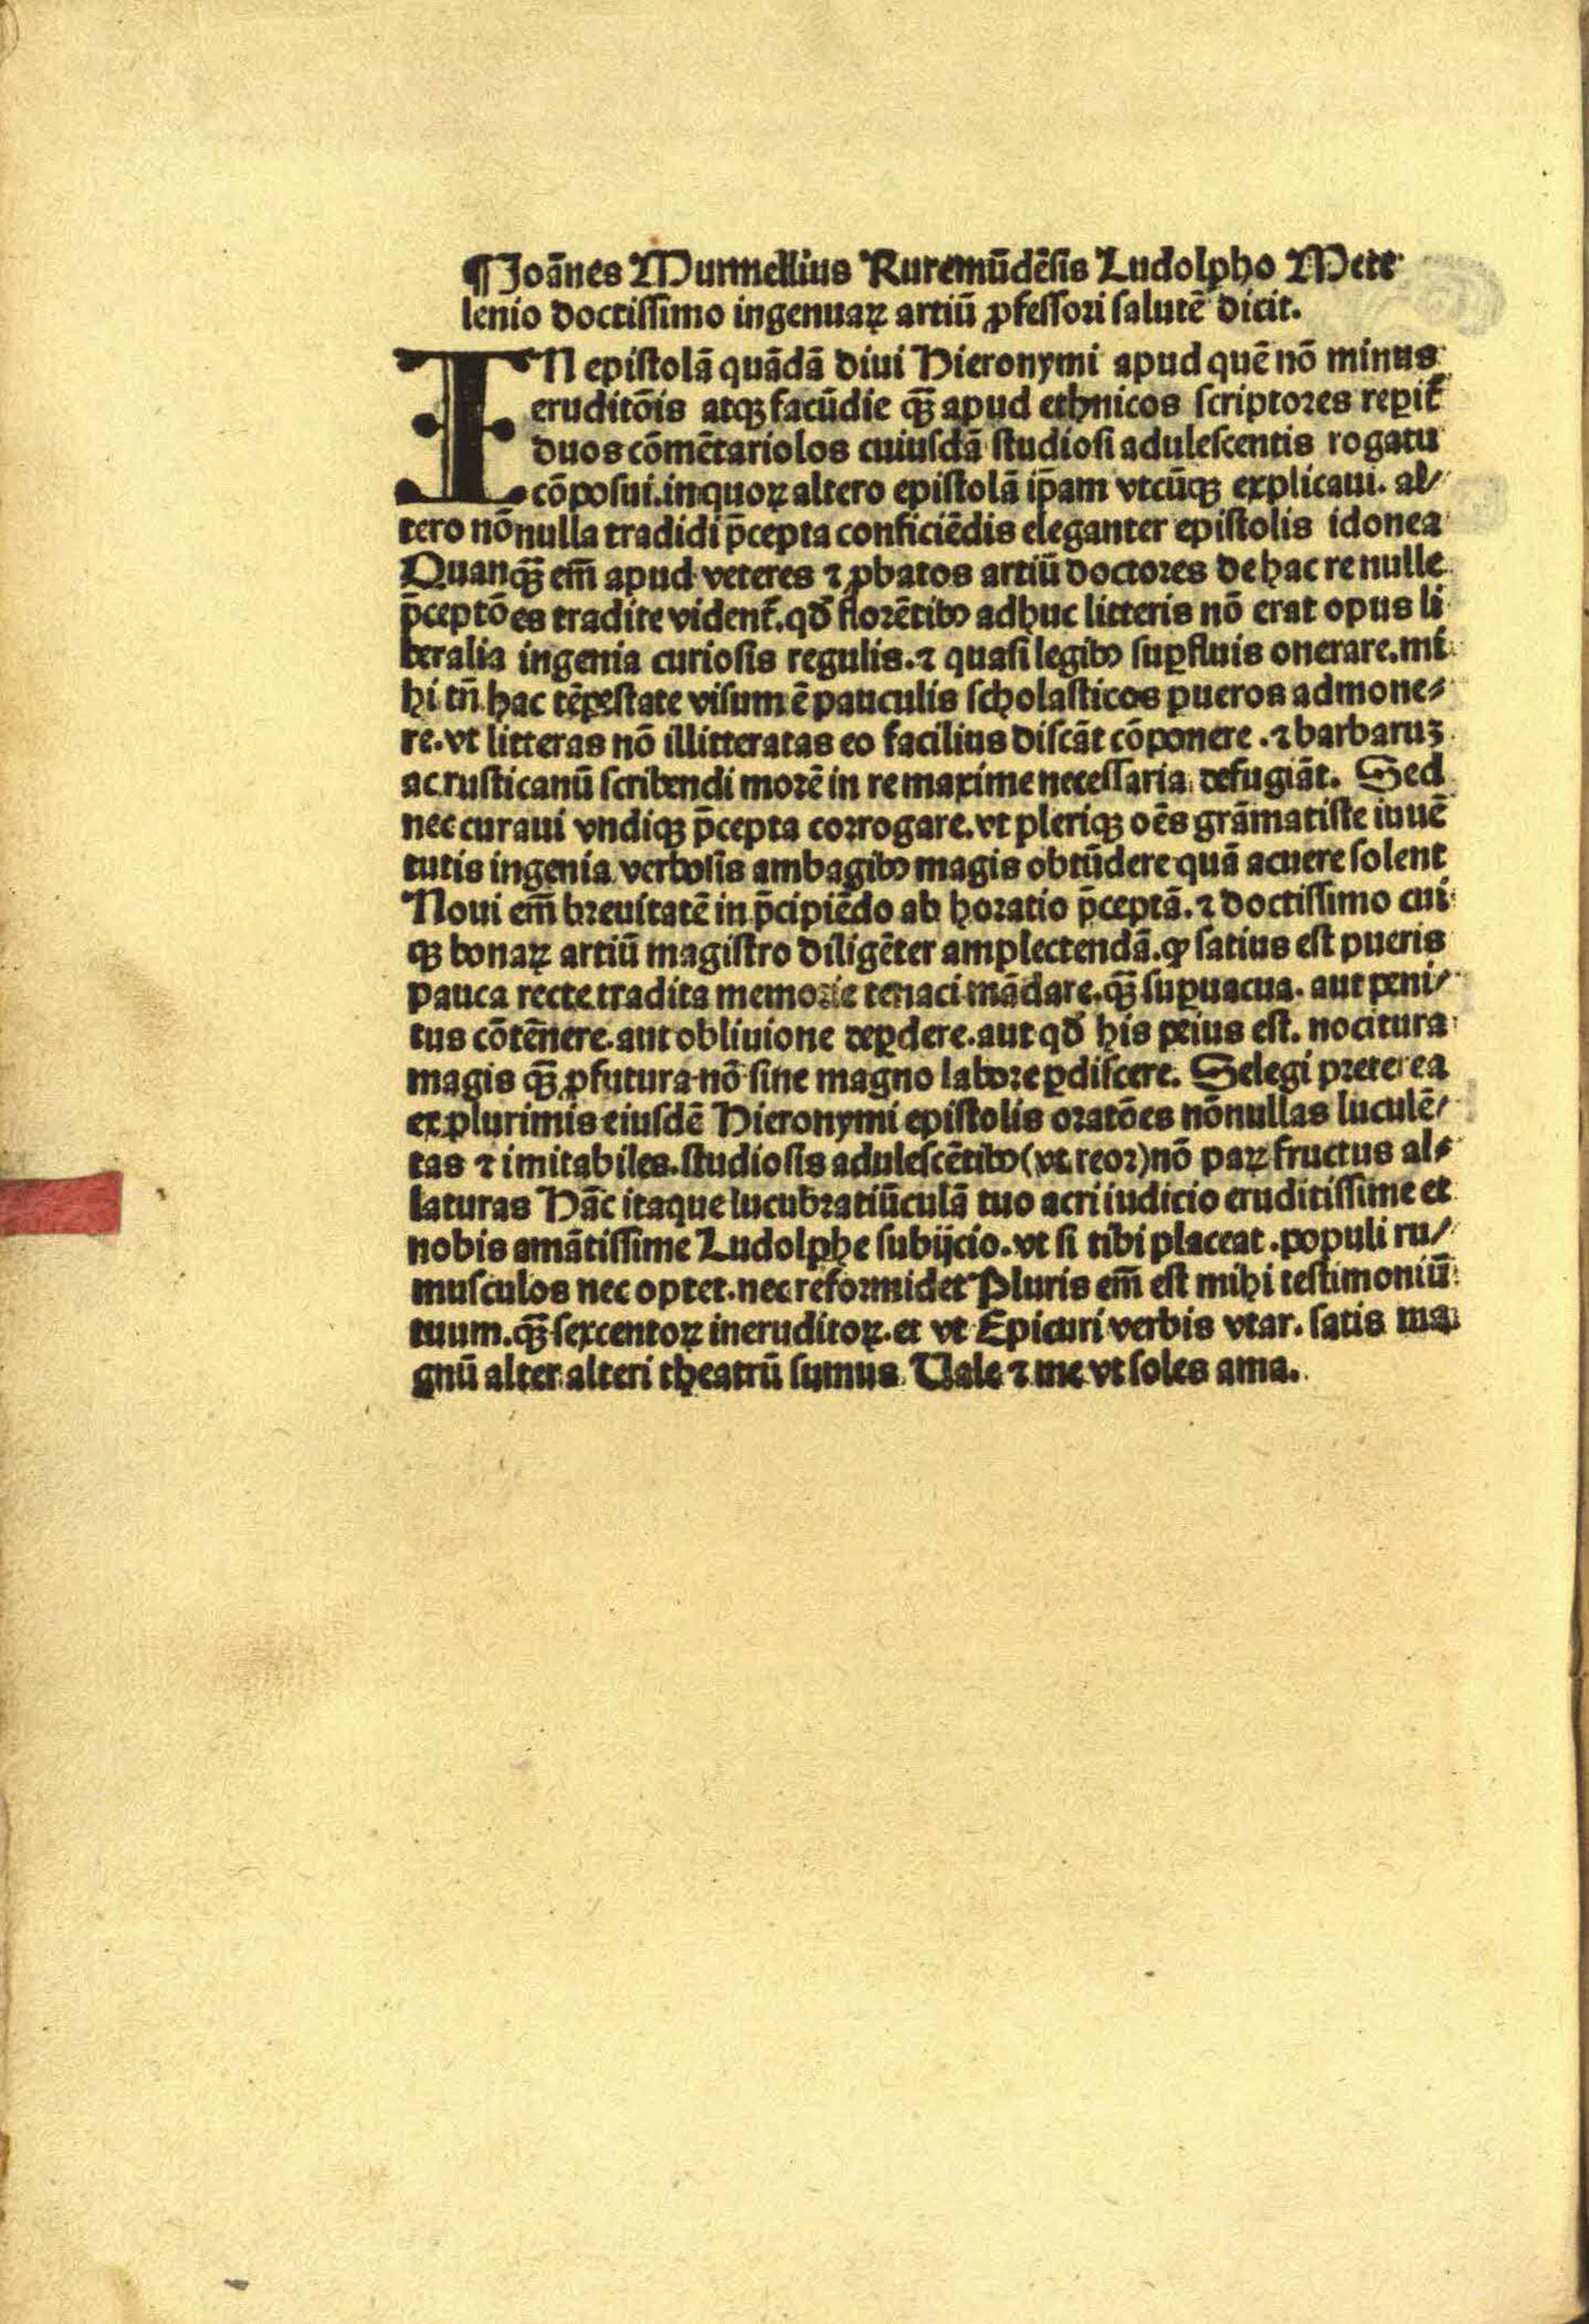 ¶Joãnes Murmellius Ruremũdẽsis Ludolpho Mete
lenio doctissimo ingenuaꝝ artiũ ꝓfessori salutẽ dicit.
IN epistolã quãdã diui Hieronymi apud quẽ nõ minus
eruditõis atqꝫ facũdie qꝫ̃ apud ethnicos scriptores repit᷑
duos cõmẽtariolos cuiusdã studiosi adulescentis rogatu
cõposui.in quoꝝ altero epistolã ip̃am vtcũqꝫ explicaui. al/
tero nõnulla tradidi p̃cepta conficiẽdis eleganter epistolis idonea
Quanqꝫ̃ em̃ apud veteres ⁊ ꝓbatos artiũ doctores de hac re nulle
p̃ceptões tradite vident᷑.qđ florẽtibꝰ adhuc litteris nõ erat opus li
beralia ingenia curiosis regulis.⁊ quasi legibꝰ suꝑfluis onerare.mi
hi tñ hac tẽpestate visum ẽ pauculis scholasticos pueros admone⸗
re.vt litteras nõ illitteratas eo facilius discãt cõponere .⁊ barbaruꝫ
ac rusticanũ scribendi morẽ in re maxime necessaria defugiãt. Sed
nec curaui vndiqꝫ p̃cepta corrogare.vt pleriqꝫ oẽs grãmatiste iuuẽ
tutis ingenia verbosis ambagibꝰ magis obtũdere quã acuere solent
Noui em̃ breuitatẽ in p̃cipiẽdo ab horatio p̃ceptã.⁊ doctissimo cui
qꝫ bonaꝝ artiũ magistro diligẽter amplectendã.ꝙ satius est pueris
pauca recte tradita memorie tenaci mãdare.qꝫ̃ suꝑuacua. aut peni/
tus cõtẽnere.aut obliuione deꝑdere.aut qđ his peius est. nocitura
magis qꝫ̃ ꝓfutura nõ sine magno labore ꝑdiscere. Selegi preterea
ex plurimis eiusdẽ Hieronymi epistolis oratões nõnullas luculẽ/
tas ⁊ imitabiles.studiosis adulescẽtibꝰ(vt reor)nõ paꝝ fructus al⸗
laturas Hãc itaque lucubratiũculã tuo acri iudicio eruditissime et
nobis amãtissime Ludolphe subijcio.vt si tibi placeat .populi ru/
musculos nec optet.nec reformidet Pluris em̃ est mihi testimoniũ
tuum.qꝫ̃ sexcentoꝝ ineruditoꝝ.et vt Epicuri verbis vtar. satis ma
gnũ alter alteri theatrũ sumus Vale ⁊ me vt soles ama.